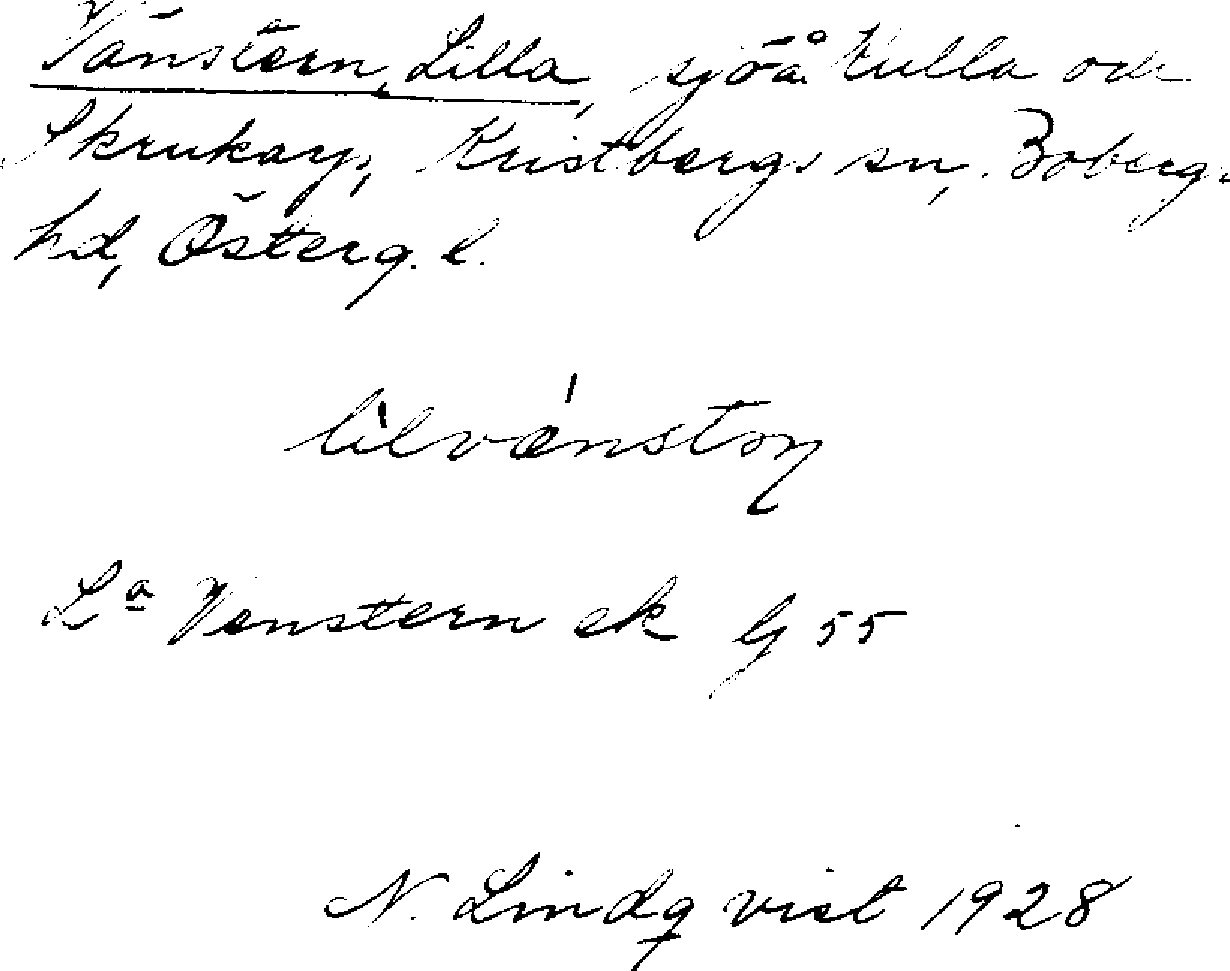 Vänstern, Lilla, sjö å Kulla och
Skrukarp, Kristbergs sn, Bobergs
hd, Österg. l.
lilvänstɔɳ
La Venstern ek G 55
N. Lindqvist 1928